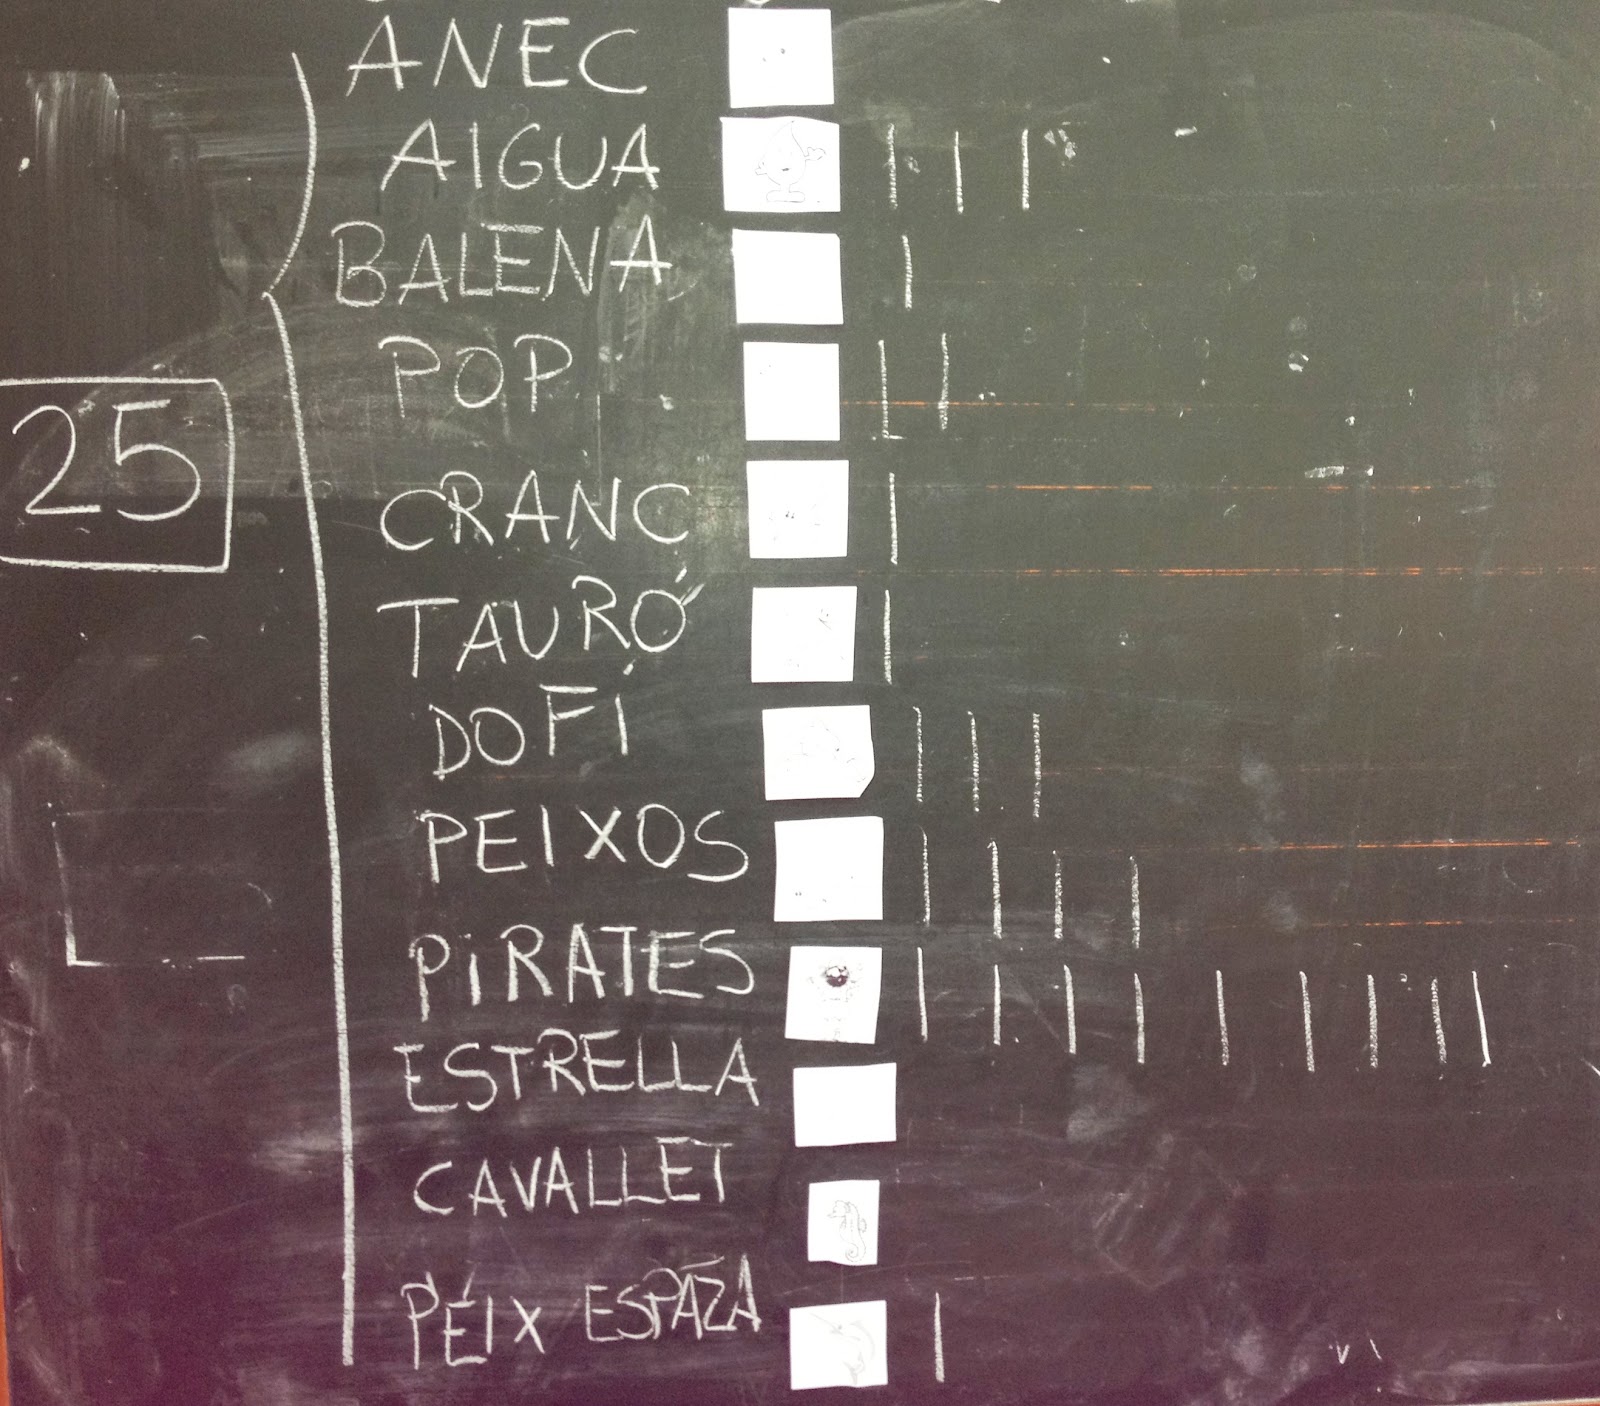 ANEC
AIGUA
BALENA
POP
25
CRANC
TAURÓ
DOFÍ
PEIXOS
PiRATES
ESTRELLA
CAVALLET
PÉIX ESPAZA